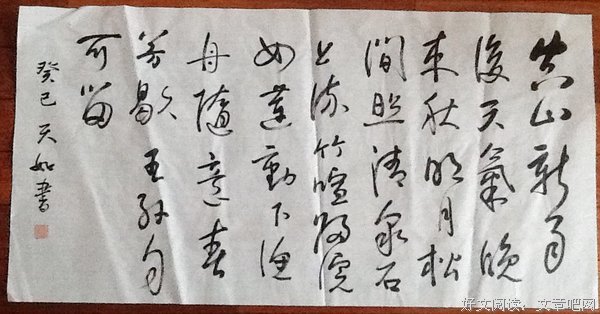 空山新雨
後天氣晚
来秋明月松
間照清泉石
上流竹喧歸浣
女蓮動下漁
舟隨意春
芳歇王孫自
可留
癸巳天如書
好文阅读：文章吧网